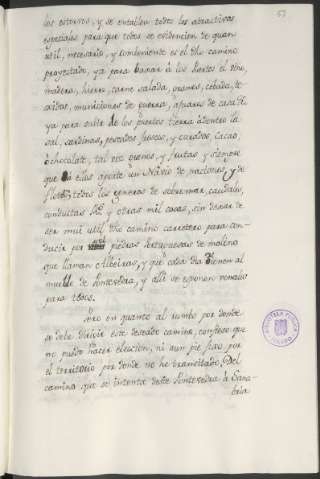 53
los estorvos, y se entallen todos los atractivos
espaciales para que todos se evidencien de quan
util, necesario, y combeniente es el dho camino
proyectado, ya para baxar á los Puertos el vino,
madera, hierro, carne salada, granos, cebada, te
xidos, municiones de guerra, apaxes de casa &
ya para salir de los puertos tierra adentro la
sal, sardinas, pescados frescos, y curados, cacao,
ó chocolate, tal vez granos, y frutas y siempre
que á ellos aporte un Navio de naciones, y de
flota todos los generos de sobermar, caudales,
conduitas Rs y otras mil cosas, sin dexar de
ser mui util dho camino carretero para con-
ducir por piedras Portuguesas de molino
que llaman Albeiras, y que cada dia vienen al
muelle de Pontevedra, y alli se exponen venales
para todos.
Pero en quanto al rumbo por donde
se debe dirivir este deseado camino, confieso que
no puedo hacer eleccion, ni aun pie fixo por
el territorio por donde no he transitado. Del
camino que se intenta desde Pontevedra á Sana-
bria